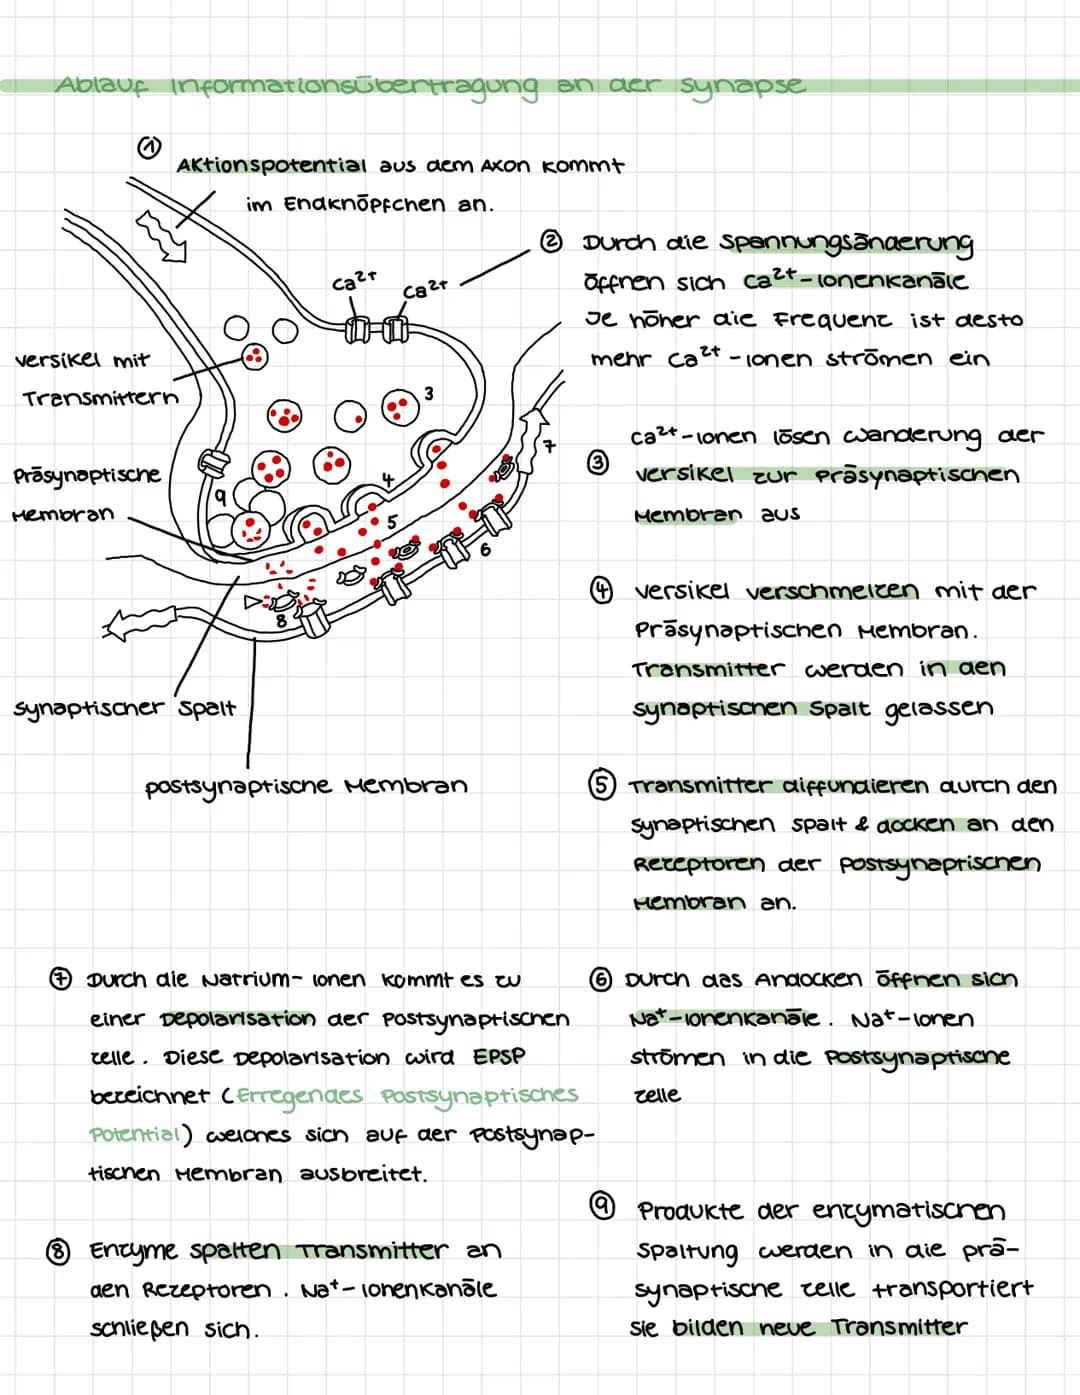 Ablauf Informationsübertragung an der Synapse
①
Aktionspotential aus dem Axon kommt
im Endknöpfchen an.
② Durch die Spannungsänderung
öffnen sich Ca²⁺-Ionenkanäle
Je höher die Frequenz ist desto
mehr Ca²⁺-Ionen strömen ein
Ca²⁺
Ca²⁺
Versikel mit
Transmittern
3
7
Präsynaptische
Membran
9
4
5
6
8
③
Ca²⁺-Ionen lösen Wanderung der
Versikel zur Präsynaptischen
Membran aus
④ Versikel verschmelzen mit der
Präsynaptischen Membran.
Transmitter werden in den
Synaptischen Spalt gelassen
Synaptischer Spalt
postsynaptische Membran
⑤ Transmitter diffundieren durch den
Synaptischen Spalt & docken an den
Rezeptoren der Postsynaptischen
Membran an.
⑥ Durch das Andocken öffnen sich
Na⁺-Ionenkanäle. Na⁺-Ionen
strömen in die Postsynaptische
Zelle
⑦ Durch die Natrium-Ionen kommt es zu
einer Depolarisation der Postsynaptischen
Zelle. Diese Depolarisation wird EPSP
bezeichnet (Erregendes Postsynaptisches
Potential) welches sich auf der Postsynap-
tischen Membran ausbreitet.
⑧ Enzyme spalten Transmitter an
den Rezeptoren. Na⁺-Ionenkanäle
schließen sich.
⑨ Produkte der enzymatischen
Spaltung werden in die prä-
synaptische Zelle transportiert
Sie bilden neue Transmitter